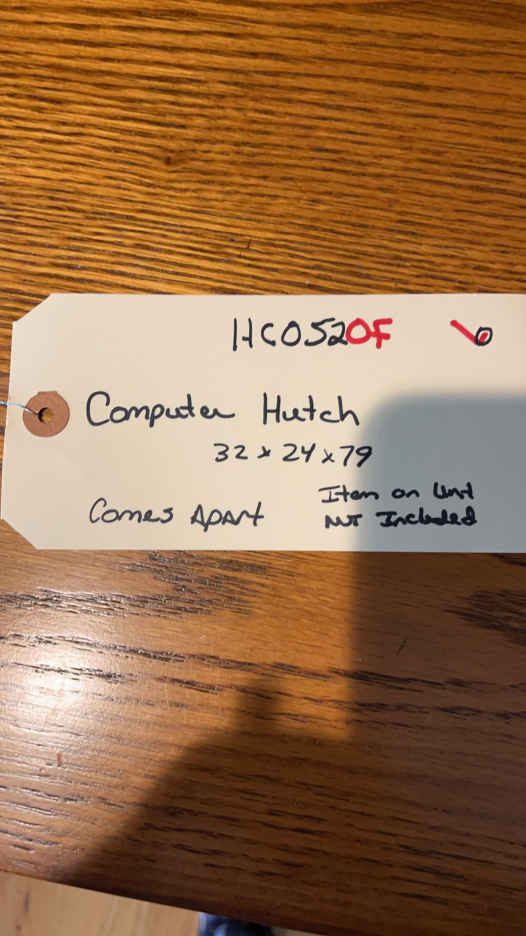 HC0520F
Computer Hutch
32 x 24 x 79
Item on Unit
Comes Apart Not Included